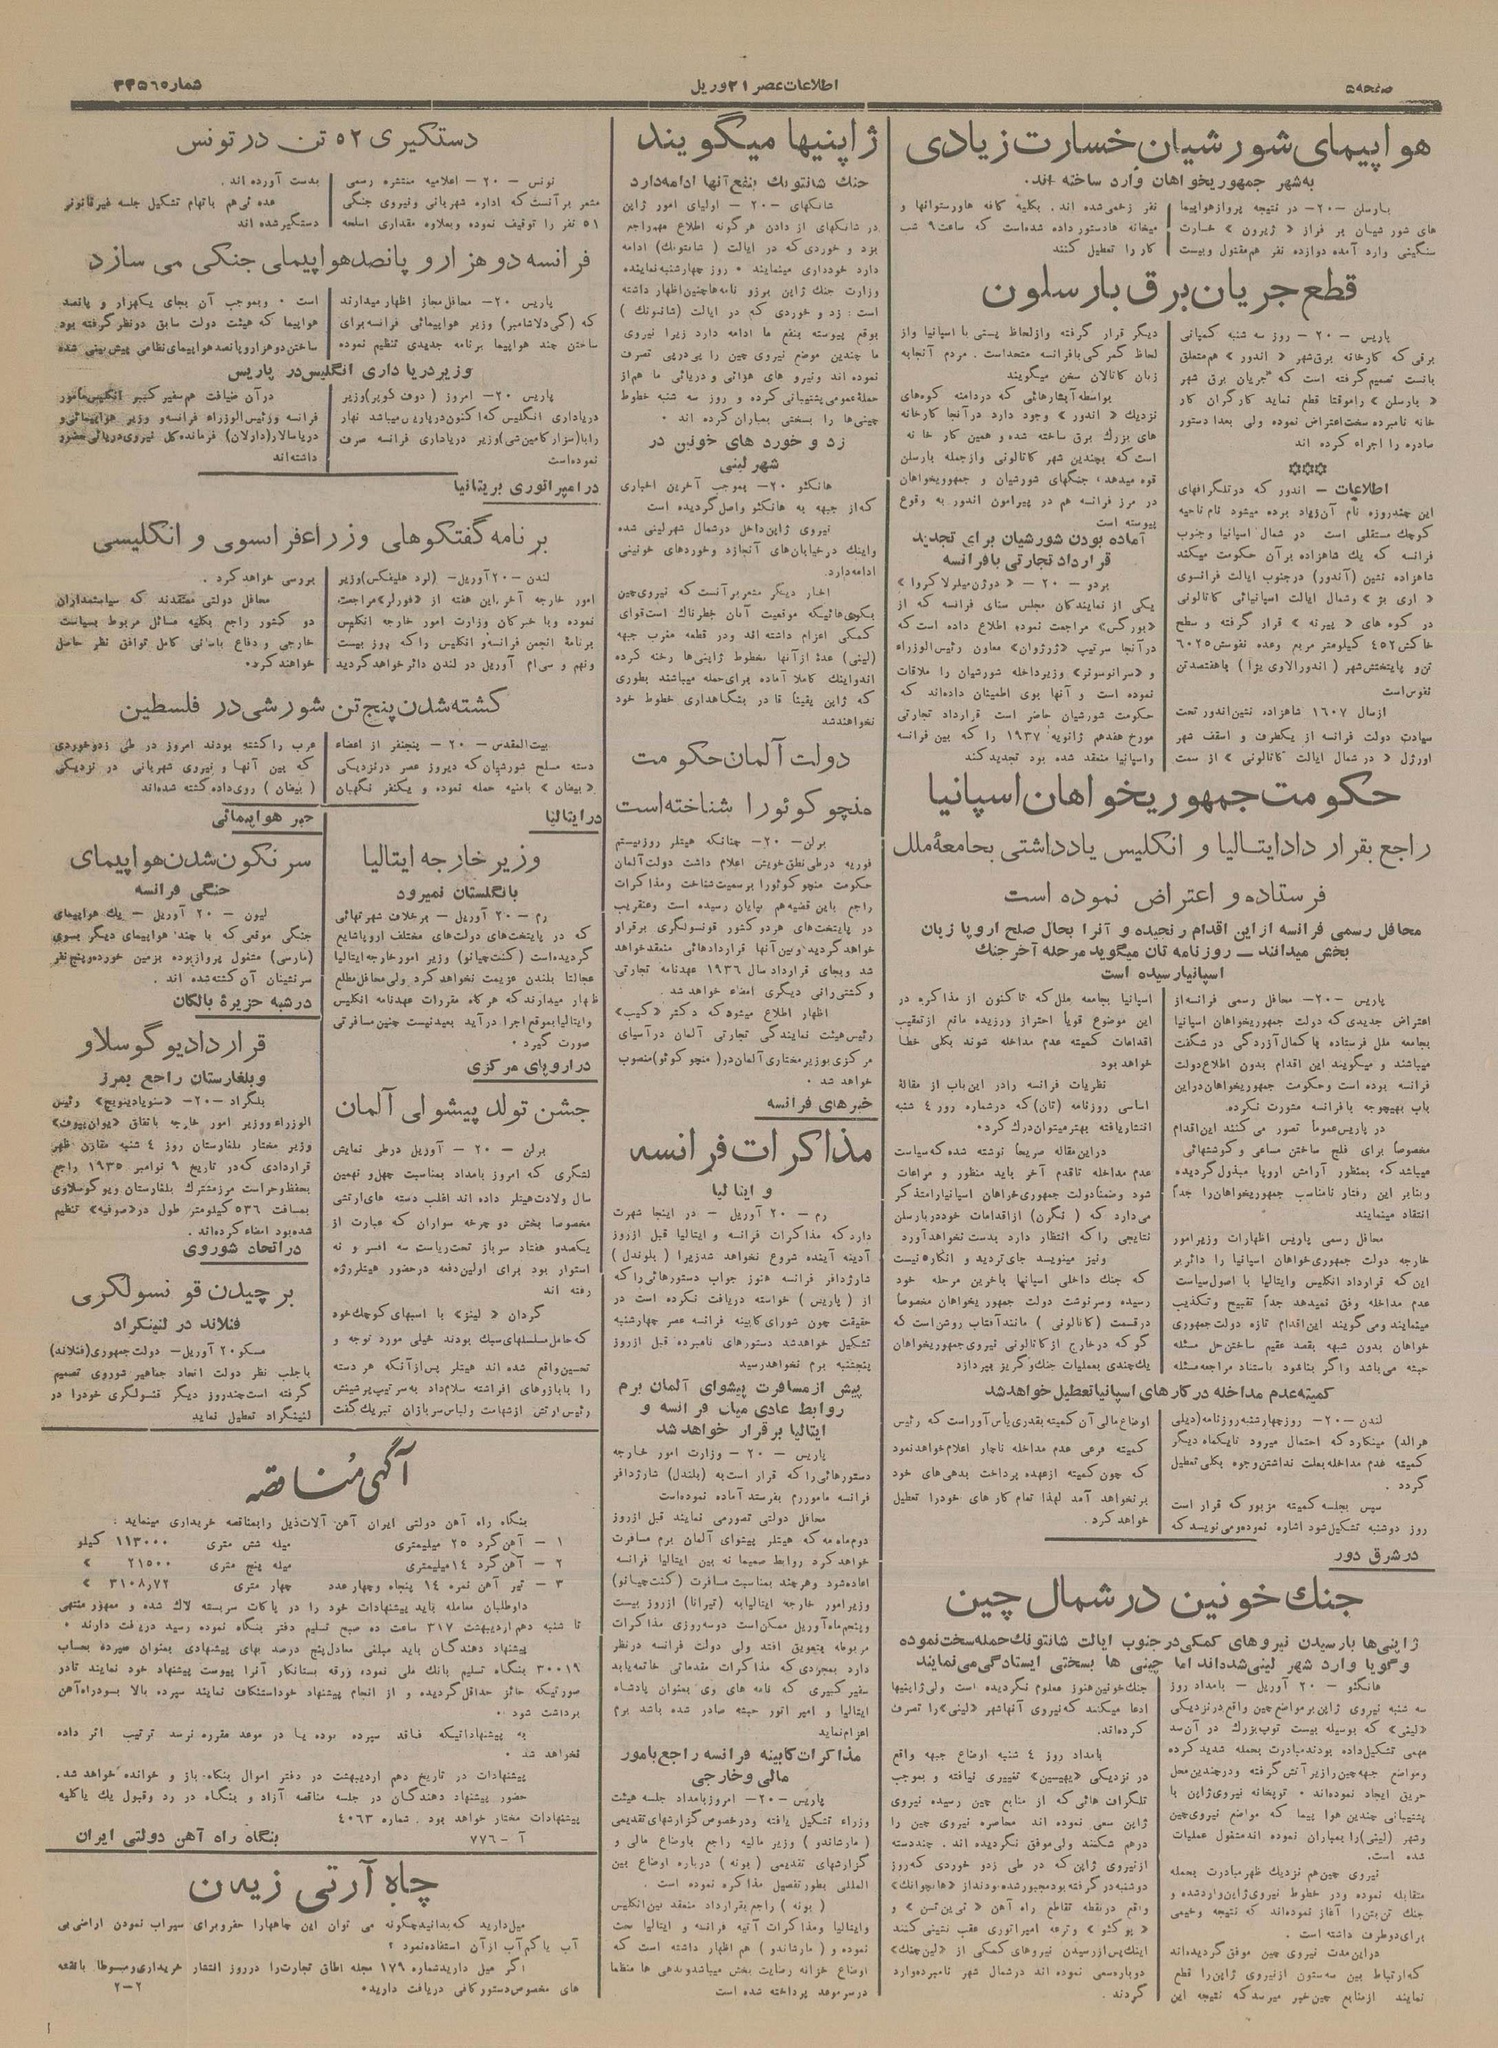 صفحه ۵
اطلاعات عصر ۲۱ آوریل
هواپیمای شورشیان خسارت زیادی
به شهر جمهوریخواهان وارد ساخته اند.
بارسلن -۲۰- در نتیجه پرواز هواپیما
های شورشیان بر فراز « ژیرون » خسارت
سنگینی وارد آمده دوازده نفر هم مقتول و بیست
نفر زخمی شده اند . بکلیه کافه ها و رستوانها و
میخانه ها دستور داده شده است که ساعت ۹ شب
کار را تعطیل کنند
قطع جریان برق بارسلون
پاریس - ۲۰ - روز سه شنبه کمپانی
برقی که کارخانه برق شهر « اندور » هم متعلق
بانست تصمیم گرفته است که جریان برق شهر
« بارسلن » را موقتا قطع نماید کارگران کار
خانه نامبرده سخت اعتراض نموده ولی بعدا دستور
صادره را اجراء کرده اند
اطلاعات - اندور که در تلگرافهای
این چند روزه نام آن زیاد برده میشود نام ناحیه
کوچک مستقلی است در شمال اسپانیا و جنوب
فرانسه که یک شاهزاده بر آن حکومت میکند
شاهزاده نشین (آندور) در جنوب ایالت فرانسوی
« اری یژ » و شمال ایالت اسپانیائی کاتالونی
در کوه های « پیرنه » قرار گرفته و سطح
خاکش ۴۵۲ کیلومتر مربع وعده نفوسش ۶۰۲۵
تن و پایتختش شهر ( اندورالاوی یژا ) با هفتصد تن
نفوس است
از سال ۱۶۰۷ شاهزاده نشین اندور تحت
سیادت دولت فرانسه از یکطرف و اسقف شهر
اورژل « در شمال ایالت کاتالونی » از سمت
دیگر قرار گرفته و از لحاظ پستی با اسپانیا و از
لحاظ گمرکی با فرانسه متحد است . مردم آنجا به
زبان کاتالان سخن میگویند
بواسطه آبشارهائی که در دامنه کوه های
نزدیک « اندور » وجود دارد در آنجا کارخانه
های بزرک برق ساخته شده و همین کار خانه
است که بچندین شهر کاتالونی و از جمله بارسلن
قوه میدهد ، جنگهای شورشیان و جمهوریخواهان
در مرز فرانسه هم در پیرامون اندور به وقوع
پیوسته است
آماده بودن شورشیان برای تجدید
قرارداد تجارتی با فرانسه
بردو - ۲۰ - « دوژن میلر لاکروا »
یکی از نمایندگان مجلس سنای فرانسه که از
« بورگس » مراجعت نموده اطلاع داده است که
در آنجا سرتیپ « ژرژوان » معاون رئیس الوزراء
و « سرانوسونر » وزیر داخله شورشیان را ملاقات
نموده است و آنها بوی اطمینان داده اند که
حکومت شورشیان حاضر است قرارداد تجارتی
مورخ هفدهم ژانویه ۱۹۳۷ را که بین فرانسه
واسپانیا منعقد شده بود تجدید کند
حکومت جمهوریخواهان اسپانیا
راجع بقرار داد ایتالیا و انگلیس یادداشتی بجامعهٔ ملل
فرستاده و اعتراض نموده است
محافل رسمی فرانسه از این اقدام رنجیده و آنرا بحال صلح اروپا زیان
بخش میدانند - روزنامه تان میگوید مرحله آخر جنک
اسپانیا رسیده است
پاریس -۲۰- محافل رسمی فرانسه از
اعتراض جدیدی که دولت جمهوریخواهان اسپانیا
بجامعه ملل فرستاده با کمال آزردگی در شگفت
میباشند و میگویند این اقدام بدون اطلاع دولت
فرانسه بوده است و حکومت جمهوریخواهان در این
باب بهیچوجه با فرانسه مشورت نکرده.
در پاریس عموماً تصور می کنند این اقدام
مخصوصا برای فلج ساختن مساعی و کوششهائی
میباشد که بمنظور آرامش اروپا مبذول گردیده
وبنابر این رفتار نامناسب جمهوریخواهان را جداً
انتقاد مینمایند
محافل رسمی پاریس اظهارات وزیر امور
خارجه دولت جمهوری خواهان اسپانیا را دائر بر
این که قرارداد انگلیس وایتالیا با اصول سیاست
عدم مداخله وفق نمیدهد جداً تقبیح وتکذیب
مینمایند ومی گویند این اقدام تازه دولت جمهوری
خواهان بدون شبهه بقصد عقیم ساختن حل مسئله
حبشه می باشد و اگر بناشود باستناد مراجعه مسئله
اسپانیا بجامعه ملل که تا کنون از مذاکره در
این موضوع قویاً احتراز ورزیده مانع از تعقیب
اقدامات کمیته عدم مداخله شوند بکلی خطا
خواهد بود
نظریات فرانسه را در این باب از مقالهٔ
اساسی روزنامه (تان) که در شماره روز ۴ شنبه
انتشار یافته بهتر میتوان درک کرد.
در این مقاله صریحاً نوشته شده که سیاست
عدم مداخله تا قدم آخر باید منظور و مراعات
شود وضمناً دولت جمهوری خواهان اسپانیا را متذکر
می دارد که ( نگرن ) از اقدامات خود در بارسلن
نتایجی را که انتظار دارد بدست نخواهد آورد
ونیز مینویسد جای تردید و انکار نیست
که جنک داخلی اسپانیا باخرین مرحله خود
رسیده وسرنوشت دولت جمهوریخواهان مخصوصا
در قسمت ( کاتالونی ) مانند آفتاب روشن است که
گو که در خارج از کاتالونی نیروی جمهوریخواهان
یک چندی بعملیات جنک و گریز بپردازد
کمیته عدم مداخله در کار های اسپانیا تعطیل خواهد شد
لندن -۲۰- روز چهارشنبه روزنامه (دیلی
هرالد) مینگارد که احتمال میرود تا یکماه دیگر
کمیته عدم مداخله بعلت نداشتن وجوه بکلی تعطیل
گردد .
سپس بجلسه کمیته مزبور که قرار است
روز دوشنبه تشکیل شود اشاره نموده ومی نویسد که
اوضاع مالی آن کمیته بقدری یأس آور است که رئیس
کمیته فرعی عدم مداخله ناچار اعلام خواهد نمود
که چون کمیته از عهده پرداخت بدهی های خود
بر نخواهد آمد لهذا تمام کار های خود را تعطیل
خواهد کرد.
در شرق دور
جنک خونین در شمال چین
ژاپنی ها با رسیدن نیرو های کمکی در جنوب ایالت شانتونک حمله سخت نموده
و گویا وارد شهر لینی شده اند اما چینی ها بسختی ایستادگی می نمایند
هانکئو - ۲۰ آوریل - بامداد روز
سه شنبه نیروی ژاپن بر مواضع چین واقع در نزدیکی
« لینی » که بوسیله بیست توپ بزرک در آن سد
مهمی تشکیل داده بودند مبادرت بحمله شدید کرده
ومواضع جبهه چین را زیر آتش گرفته و در چندین محل
حریق ایجاد نموده اند ۰ توپخانه نیروی ژاپن با
پشتیبانی چندین هوا پیما که مواضع نیروی چین
وشهر (لینی) را بمباران نموده اند مشغول عملیات
شده است.
نیروی چین هم نزدیک ظهر مبادرت بحمله
متقابله نموده ودر خطوط نیروی ژاپن وارد شده و
جنک تن بتن را آغاز نموده اند که نتیجه وخیمی
برای دو طرف داشته است .
در این مدت نیروی چین موفق گردیده اند
که ارتباط بین سه ستون از نیروی ژاپن را قطع
نمایند از منابع چین خبر میرسد که نتیجه این
جنک خونین هنوز معلوم نگردیده است ولی ژاپنیها
ادعا میکنند که نیروی آنها شهر « لینی » را تصرف
کرده اند.
بامداد روز ۴ شنبه اوضاع جبهه واقع
در نزدیکی « یهسین » تغییری نیافته و بموجب
تلگرافات هائی که از منابع چین رسیده نیروی
ژاپن سعی نموده اند محاصره نیروی چین را
درهم شکنند ولی موفق نگردیده اند . چند دسته
از نیروی ژاپن که در طی زدو خوردی که روز
دوشنبه در گرفته بود مجبور شده بودند از « هانچوانک »
واقع در نقطه تقاطع راه آهن « تی ین تسن » و
« پوکئو » و ترعه امپراتوری عقب نشینی کنند
اینک پس از رسیدن نیرو های کمکی از « لین چنک »
دوباره سعی نموده اند در شمال شهر نامبرده وارد
گردند .
ژاپنیها میگویند
جنک شانتونک بنفع آنها ادامه دارد
شانگهای - ۲۰ - اولیای امور ژاپن
در شانگهای از دادن هر گونه اطلاع مهم راجع
بزد و خوردی که در ایالت ( شانتونک ) ادامه
دارد خودداری مینمایند ۰ روز چهارشنبه نماینده
وزارت جنک ژاپن بروز نامه ها چنین اظهار داشته
است : زد و خوردی که در ایالت ( شانتونک )
بوقع پیوسته بنفع ما ادامه دارد زیرا نیروی
ما چندین موضع نیروی چین را پی در پی تصرف
نموده اند ونیرو های هوائی و دریائی ما هم از
حملهٔ عمومی پشتیبانی کرده و روز سه شنبه خطوط
چینی ها را بسختی بمباران کرده اند ۰
زد و خورد های خونین در
شهر لینی
هانکئو -۲۰- بموجب آخرین اخباری
که از جبهه به هانکئو واصل گردیده است
نیروی ژاپن داخل در شمال شهر لینی شده
واینک در خیابان های آنجا زد وخورد های خونینی
ادامه دارد.
اخبار دیگر مشعر بر آنست که نیروی چین
بکوی هائیکه موقعیت آنان خطرناک است قوای
کمکی اعزام داشته اند ودر قطعه مغرب جبهه
(لینی) عدهٔ از آنها بخطوط ژاپنی ها رخنه کرده
اند و اینک کاملا آماده برای حمله میباشند بطوری
که ژاپن یقیناً قادر بنگاهداری خطوط خود
نخواهند شد
دولت آلمان حکومت
منچوکوئو را شناخته است
برلن -۲۰- چنانکه هیتلر روز بیستم
فوریه در طی نطق خویش اعلام داشت دولت آلمان
حکومت منچوکوئو را برسمیت شناخت ومذاکرات
راجع باین قضیه هم بپایان رسیده است وعنقریب
در پایتخت های هر دو کشور قونسولگری برقرار
خواهد گردید وبین آنها قراردادهائی منعقد خواهد
شد و بجای قرارداد سال ۱۹۳۶ عهدنامه تجارتی
وکشتی رانی دیگری امضاء خواهد شد.
اظهار اطلاع میشود که دکتر « کیب »
رئیس هیئت نمایندگی تجارتی آلمان در آسیای
مرکزی بوزیر مختاری آلمان در ( منچوکوئو ) منصوب
خواهد شد ۰
خبرهای فرانسه
مذاکرات فرانسه
و ایتالیا
رم - ۲۰ آوریل - در اینجا شهرت
دارد که مذاکرات فرانسه و ایتالیا قبل از روز
آدینه آینده شروع نخواهد شد زیرا ( بلوندل )
شارژدافر فرانسه هنوز جواب دستورهائی را که
از ( پاریس ) خواسته دریافت نکرده است در
حقیقت چون شورای کابینه فرانسه عصر چهارشنبه
تشکیل خواهد شد دستورهای نامبرده قبل از روز
پنجشنبه برم نخواهد رسید
پیش از مسافرت پیشوای آلمان برم
روابط عادی میان فرانسه و
ایتالیا برقرار خواهد شد
پاریس - ۲۰ - وزارت امور خارجه
دستورهائی را که قرار است به (بلندل) شارژدافر
فرانسه مامور رم بفرستد آماده نموده است
محافل دولتی تصور می نمایند قبل از روز
دوم ماه مه که هیتلر پیشوای آلمان برم مسافرت
خواهد کرد روابط صمیمانه بین ایتالیا فرانسه
اعاده شود و هر چند بمناسبت مسافرت (کنت چیانو)
وزیر امور خارجه ایتالیا به (تیرانا) از روز بیست
وپنجم ماه آوریل ممکن است دوسه روزی مذاکرات
مربوطه بتعویق افتد ولی دولت فرانسه در نظر
دارد بمجردی که مذاکرات مقدماتی خاتمه یابد
سفیر کبیری که نامه های وی بعنوان پادشاه
ایتالیا و امپراتور حبشه صادر شده باشد برم
اعزام نماید
مذاکرات کابینه فرانسه راجع بامور
مالی وخارجی
پاریس -۲۰- امروز بامداد جلسه هیئت
وزراء تشکیل یافته ودر خصوص گزارشهای تقدیمی
( مارشاندو ) وزیر مالیه راجع باوضاع مالی و
گزارشهای تقدیمی ( بونه ) درباره اوضاع بین
المللی بطور تفصیل مذاکره نموده است .
( بونه ) راجع بقرارداد منعقد بین انگلیس
وایتالیا ومذاکرات آتیه فرانسه و ایتالیا بحث
نموده و ( مارشاندو ) هم اظهار داشته است که
اوضاع خزانه رضایت بخش میباشد و بدهی ها منظما
در سر موعد پرداخته شده است
دستگیری ۵۲ تن در تونس
تونس - ۲۰ - اعلامیه منتشره رسمی
مشعر بر آنست که اداره شهربانی و نیروی جنگی
۵۱ نفر را توقیف نموده وبعلاوه مقداری اسلحه
بدست آورده اند .
عده ئی هم باتهام تشکیل جلسه غیر قانونی
دستگیر شده اند
فرانسه دو هزار و پانصد هواپیمای جنگی می سازد
پاریس ۲۰- محافل مجاز اظهار میدارند
که (گی دلاشامبر) وزیر هواپیمائی فرانسه برای
ساختن چند هواپیما برنامه جدیدی تنظیم نموده
است ۰ وبموجب آن بجای یکهزار و پانصد
هواپیما که هیئت دولت سابق در نظر گرفته بود
ساختن دو هزار و پانصد هواپیمای نظامی پیش بینی شده
وزیر دریاداری انگلیس در پاریس
پاریس -۲۰- امروز ( دوف کوپر) وزیر
دریاداری انگلیس که اکنون در پاریس میباشد نهار
را با (سزار کامپن شی) وزیر دریاداری فرانسه صرف
نموده است
در آن ضیافت هم سفیر کبیر انگلیس مامور
فرانسه ورئیس الوزراء فرانسه و وزیر هواپیمائی و
دریاسالار (دارلان) فرمانده کل نیروی دریائی حضور
داشته اند
در امپراتوری بریتانیا
برنامه گفتگوهای وزراء فرانسوی و انگلیسی
لندن -۲۰ آوریل- (لرد هلیفکس) وزیر
امور خارجه آخر این هفته از « فورلر » مراجعت
نموده وبا خبرگان وزارت امور خارجه انگلیس
برنامهٔ انجمن فرانسه و انگلیس را که روز بیست
ونهم و سی ام آوریل در لندن دائر خواهد گردید
بررسی خواهد کرد .
محافل دولتی معتقدند که سیاستمداران
دو کشور راجع بکلیه مسائل مربوط بسیاست
خارجی و دفاع باسانی کامل توافق نظر حاصل
خواهند کرد.
کشته شدن پنج تن شورشی در فلسطین
بیت المقدس - ۲۰ - پنجنفر از اعضاء
دسته مسلح شورشیان که دیروز عصر در نزدیکی
« بیضان » بامنیه حمله نموده و یکنفر نگهبان
عرب را کشته بودند امروز در طی زد و خوردی
که بین آنها و نیروی شهربانی در نزدیکی
( بیضان ) روی داده کشته شده اند
در ایتالیا
وزیر خارجه ایتالیا
بانگلستان نمیرود
رم - ۲۰ آوریل - برخلاف شهرتهائی
که در پایتخت های دولت های مختلف اروپا شایع
گردیده است ( کنت چیانو ) وزیر امور خارجه ایتالیا
عجالتا بلندن عزیمت نخواهد کرد ولی محافل مطلع
ظهار میدارند که هر گاه مقررات عهدنامه انگلیس
وایتالیا بموقع اجرا در آید بعید نیست چنین مسافرتی
صورت گیرد ۰
در اروپای مرکزی
جشن تولد پیشوای آلمان
برلن - ۲۰ - آوریل در طی نمایش
لشگری که امروز بامداد بمناسبت چهل و نهمین
سال ولادت هیتلر داده اند اغلب دسته های ارتشی
مخصوصا بخش دو چرخه سواران که عبارت از
یکصد و هفتاد سرباز تحت ریاست سه افسر و نه
استوار بود برای اولین دفعه در حضور هیتلر رژه
رفته اند
گردان « لینز » با اسبهای کوچک خود
که حامل مسلسلهای سبک بودند خیلی مورد توجه و
تحسین واقع شده اند هیتلر پس از آنکه هر دسته
را با بازوهای افراشته سلام داد به سرتیپ برشیتش
رئیس ارتش از شهامت ولباس سربازان تبریک گفت
خبر هواپیمائی
سرنگون شدن هواپیمای
جنگی فرانسه
لیون - ۲۰ آوریل - یک هواپیمای
جنگی موقعی که با چند هواپیمای دیگر بسوی
(مارسی) مشغول پرواز بوده بزمین خورده وپنج نفر
سرنشینان آن کشته شده اند .
در شبه جزیرهٔ بالکان
قرارداد یوگوسلاو
و بلغارستان راجع بمرز
بلگراد -۲۰- « ستویادینویچ » رئیس
الوزراء ووزیر امور خارجه باتفاق « یوان پیوف »
وزیر مختار بلغارستان روز ۴ شنبه مقارن ظهر
قراردادی که در تاریخ ۹ نوامبر ۱۹۳۵ راجع
بحفظ وحراست مرز مشترک بلغارستان ویوگوسلاوی
بمسافت ۵۳۶ کیلومتر طول در « صوفیه » تنظیم
شده بود امضاء کرده اند.
در اتحاد شوروی
برچیدن قونسولگری
فنلاند در لنینگراد
مسکو ۲۰ آوریل- دولت جمهوری (فنلاند)
با جلب نظر دولت اتحاد جماهیر شوروی تصمیم
گرفته است چند روز دیگر قنسولگری خود را در
لنینگراد تعطیل نماید
آگهی مناقصه
بنگاه راه آهن دولتی ایران آهن آلات ذیل را بمناقصه خریداری مینماید :
۱ - آهن گرد ۲۵ میلیمتری میله شش متری ۱۱۳۰۰۰ کیلو
۲ - آهن گرد ۱۴ میلیمتری میله پنج متری ۲۱۵۰۰ »
۳ - تیر آهن نمره ۱۴ پنجاه وچهار عدد چهار متری ۳۱۰۸٫۷۲ »
داوطلبان معامله باید پیشنهادات خود را در پاکات سربسته لاک شده و ممهور منتهی
تا شنبه دهم اردیبهشت ۳۱۷ ساعت ده صبح تسلیم دفتر بنگاه نموده رسید دریافت دارند ۰
پیشنهاد دهندگان باید مبلغی معادل پنج درصد بهای پیشنهادی بعنوان سپرده بحساب
۳۰۰۱۹ بنگاه تسلیم بانک ملی نموده ورقه بستانکار آنرا پیوست پیشنهاد خود نمایند تا در
صورتیکه حائز حداقل گردیده و از انجام پیشنهاد خود استنکاف نمایند سپرده بالا بسود راه آهن
برداشت شود ۰
به پیشنهاداتیکه فاقد سپرده بوده یا در موعد مقرره نرسد ترتیب اثر داده
نخواهد شد ۰
پیشنهادات در تاریخ دهم اردیبهشت در دفتر اموال بنگاه باز و خوانده خواهد شد .
حضور پیشنهاد دهندگان در جلسه مناقصه آزاد و بنگاه در رد وقبول یک یا کلیه
پیشنهادات مختار خواهد بود . شماره ۴۰۶۳
آ -۷۷۶ بنگاه راه آهن دولتی ایران
چاه آرتی زیەن
میل دارید که بدانید چگونه می توان این چاهها را حفر و برای سیراب نمودن اراضی بی
آب یا کم آب از آن استفاده نمود ؟
اگر میل دارید شماره ۱۷۹ مجله اطاق تجارت را در روز انتشار خریداری ومبسوطا با نقشه
های مخصوص دستور کافی دریافت دارید. ۲-۲